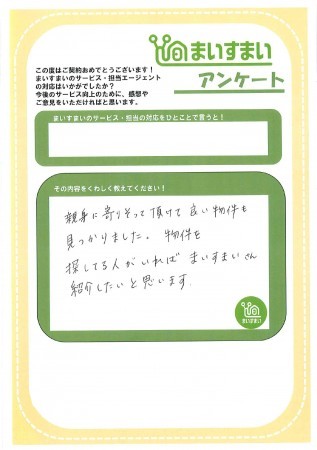 まいすまい
アンケート
この度はご契約おめでとうございます！
まいすまいのサービス・担当エージェント
の対応はいかがでしたか？
今後のサービス向上のために、感想や
ご意見をいただければと思います。
まいすまいのサービス・担当の対応をひとことで言うと！
その内容をくわしく教えてください！
親身に寄りそって頂けて良い物件も
見つかりました。物件を
探してる人がいれば まいすまいさん
紹介したいと思います。
まいすまい